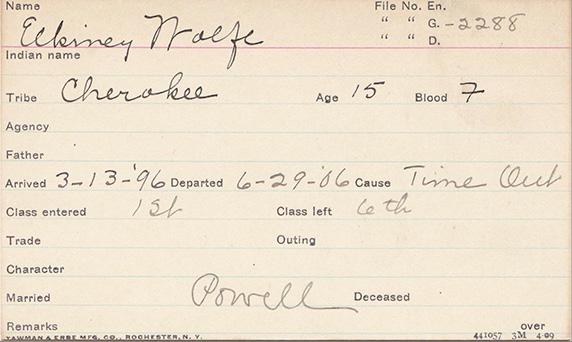 Name File No. En.
Elkiney Wolfe " " G. -2288
" " D.
Indian name
Tribe Cherokee Age 15 Blood 7
Agency
Father
Arrived 3-13-'96 Departed 6-29-'06 Cause Time Out
Class entered 1st Class left 6th
Trade Outing
Character
Married Powell Deceased
Remarks over
YAWMAN & ERBE MFG. CO., ROCHESTER, N. Y. 441057 3M 4-09